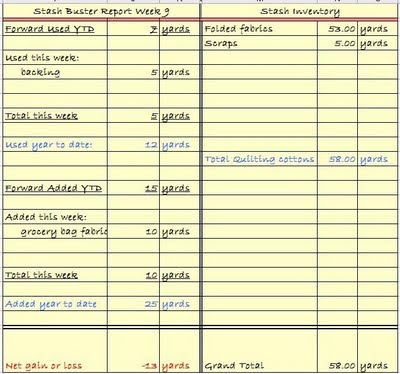 Stash Buster Report Week 9
Forward Used YTD 7 yards
Used this week:
backing 5 yards
Total this week 5 yards
Used year to date: 12 yards
Forward Added YTD 15 yards
Added this week:
grocery bag fabric 10 yards
Total this week 10 yards
Added year to date 25 yards
Net gain or loss -13 yards
Stash Inventory
Folded fabrics 53.00 yards
Scraps 5.00 yards
Total Quilting cottons 58.00 yards
Grand Total 58.00 yards